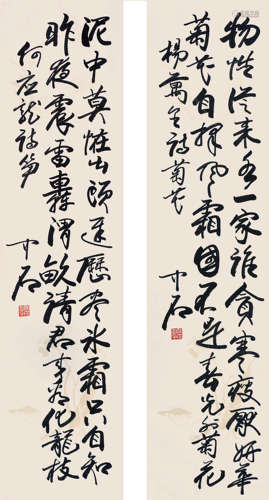 物性從来各一家誰貪寒瘦厭妍華
菊花自擇風霜國不是春光外菊花
楊萬里詩菊花
中石
泥中莫怪出頭遲歷盡冰霜只自知
昨夜震雷轟渭畝請君来看化龍枝
何应龍詩筍
中石